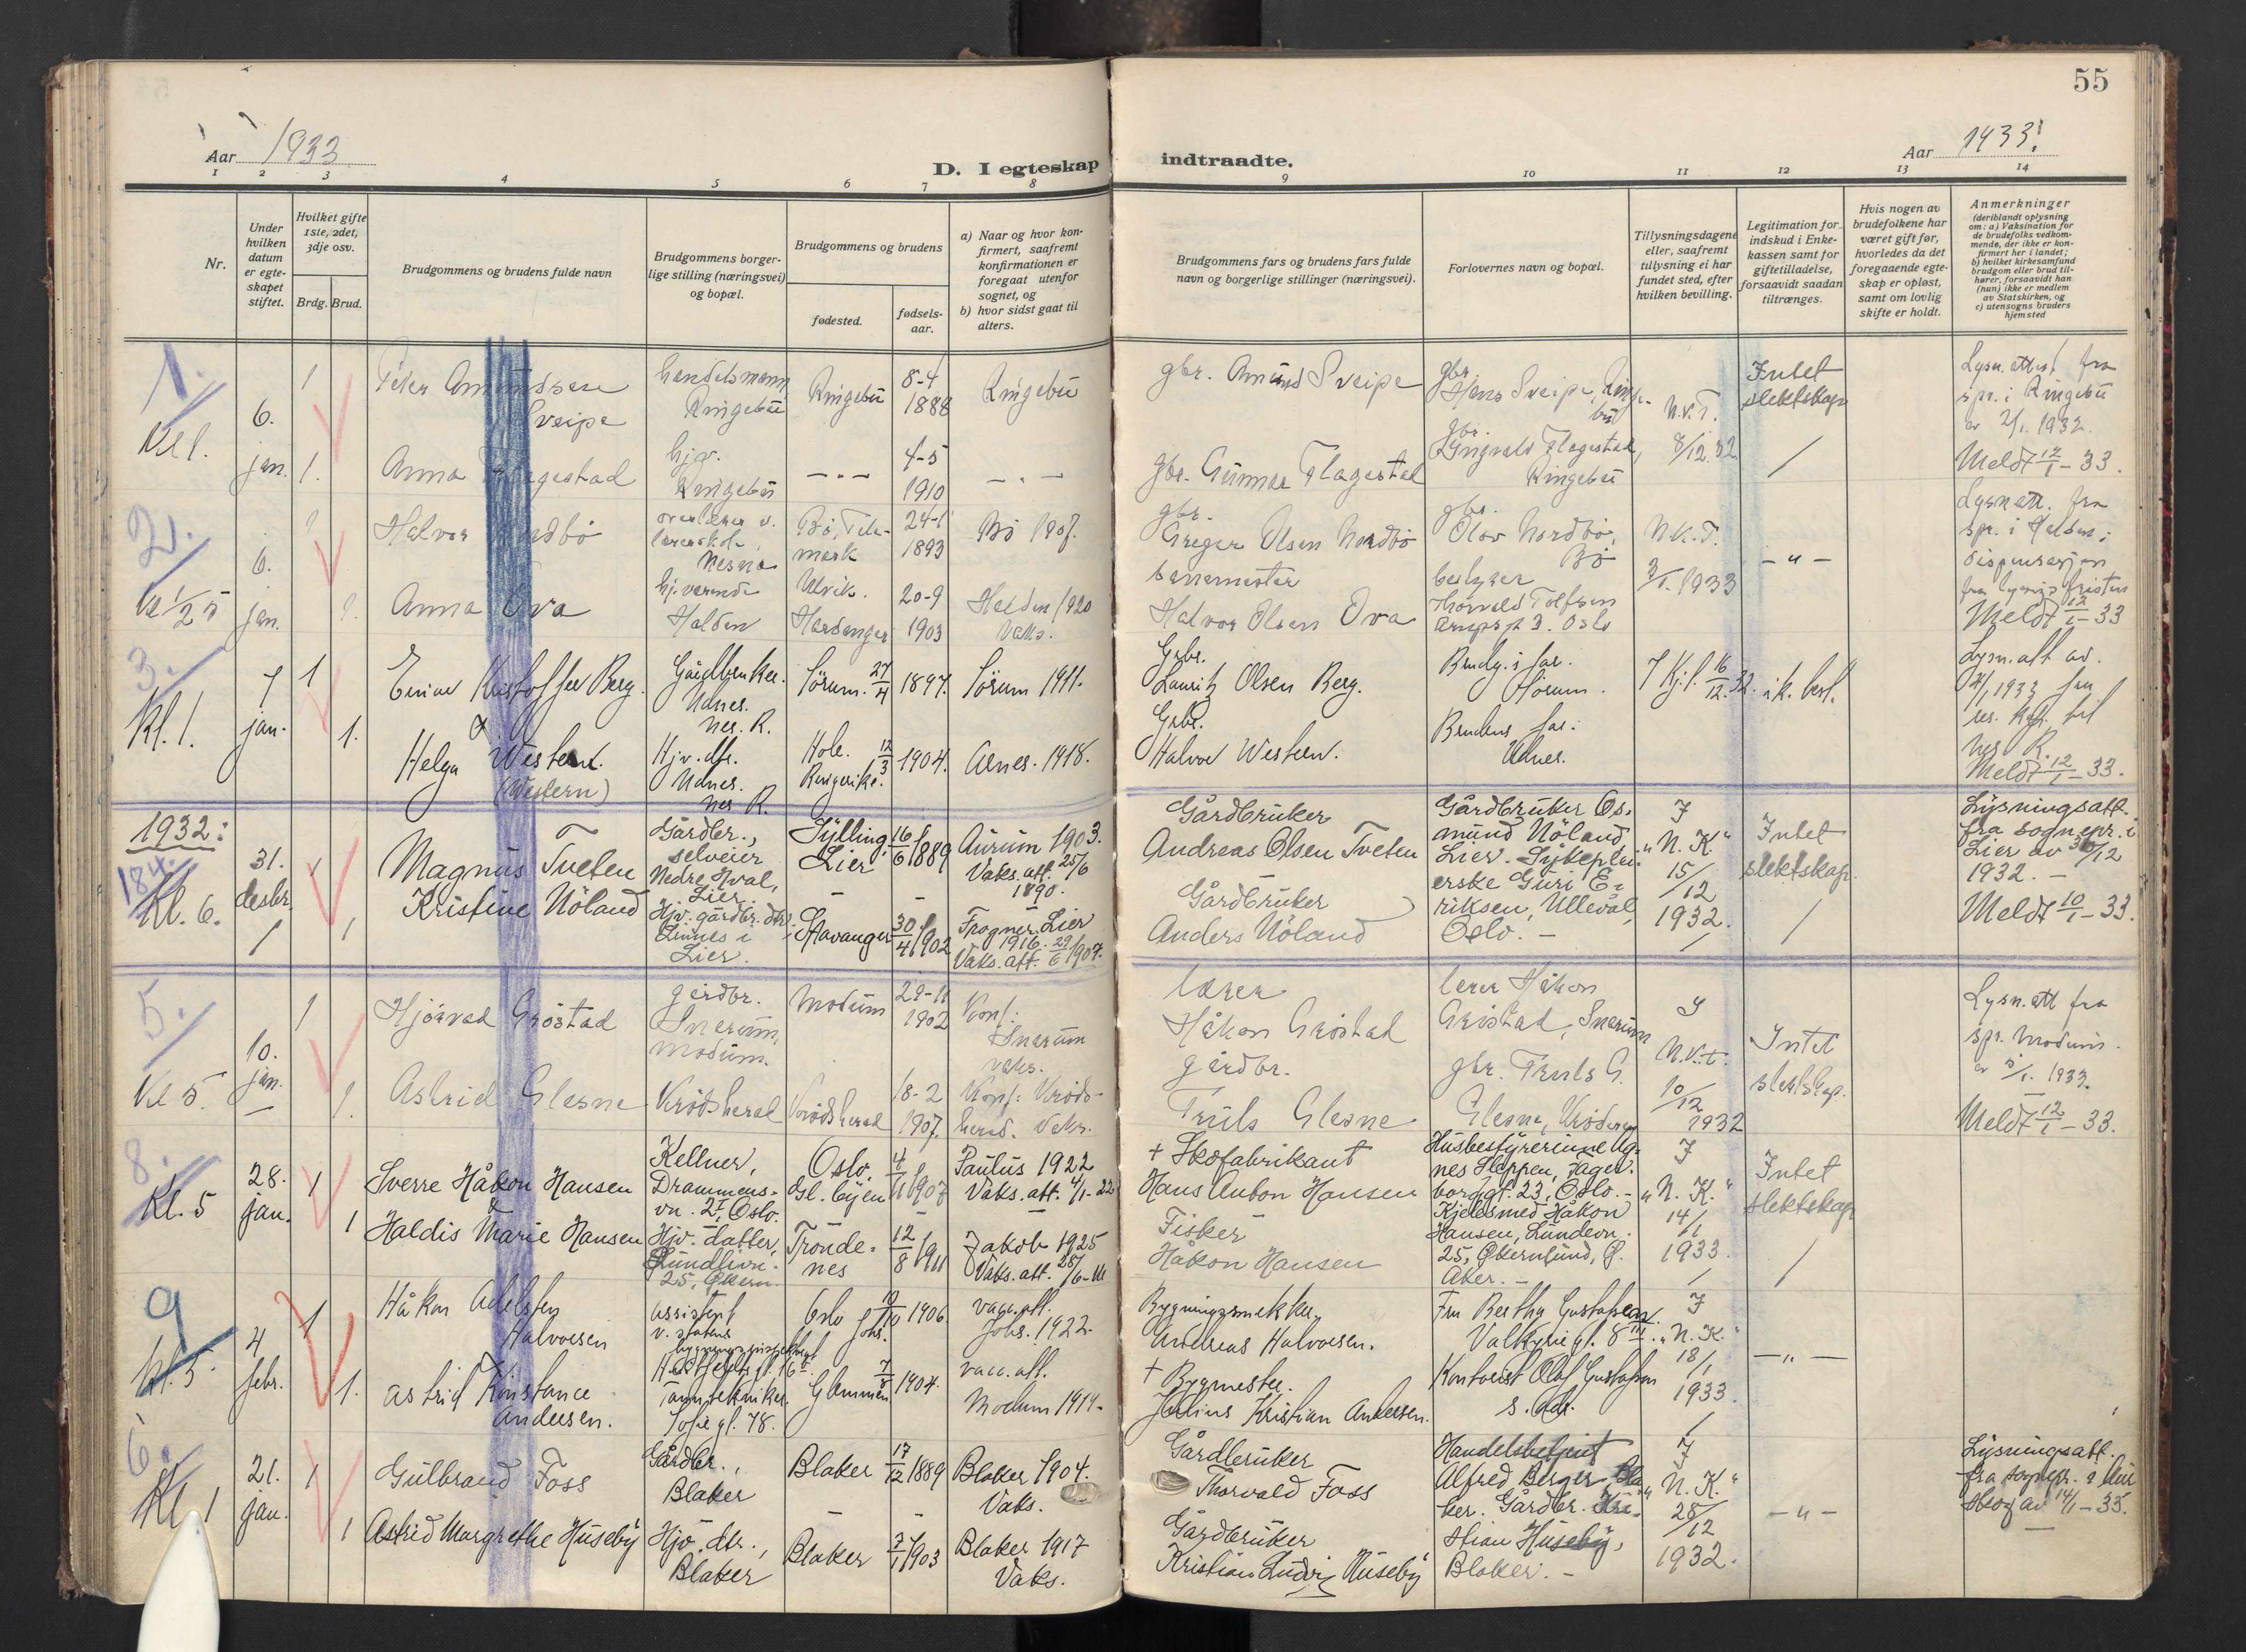 55
Aar 1933
Aar 1933.
D. I egteskap
indtraadte.
1
2
3
4
5
6
7
8
9
10
11
12
13
14
Nr.
Under
hvilken
datum
er egte-
skapet
stiftet.
Hvilket gifte
1ste, 2det,
3dje osv.
Brdg. Brud.
Brudgommens og brudens fulde navn
Brudgommens borger-
lige stilling (næringsvei)
og bopæl.
Brudgommens og brudens
fødested.
fødsels-
aar.
a) Naar og hvor kon-
firmert, saafremt
konfirmationen er
foregaat utenfor
sognet, og
b) hvor sidst gaat til
alters.
Brudgommens fars og brudens fars fulde
navn og borgerlige stillinger (næringsvei).
Forlovernes navn og bopæl.
Tillysningsdagene
eller, saafremt
tillysning ei har
fundet sted, efter
hvilken bevilling.
Legitimation for
indskud i Enke-
kassen samt for
giftetilladelse,
forsaavidt saadan
tiltrænges.
Hvis nogen av
brudefolkene har
været gift før,
hvorledes da det
foregaaende egte-
skap er opløst,
samt om lovlig
skifte er holdt.
Anmerkninger
(deriblandt oplysning
om: a) Vaksination for
de brudefolks vedkom-
mende, der ikke er kon-
firmert her i landet;
b) hvilket kirkesamfund
brudgom eller brud til-
hører, forsaavidt han
(hun) ikke er medlem
av Statskirken, og
c) utensogns bruders
hjemsted
1.
Kl 1.
6.
jan.
1
1.
Peter Amundsen
Sveipe
handelsmann
Ringebu
Ringebu
8-4
1888
Ringebu
gbr. Amund Sveipe
gbr.
Hans Sveipe, Ringe-
bu
N.K.T.
8/12.32
Intet
slektskap
/
Lysn. attest fra
spr. i Ringebu
av 2/1. 1932.
Meldt 12/1-33.
Anna Flagestad
hjv.
Ringebu
— " —
4-5
1910
— " —
gbr. Gunnar Flagestad
gbr.
Ringvald Flagestad,
Ringebu
2.
6.
jan.
Halvor Nordbø
overlærer v.
lærerskole,
Nesna
Bø, Tele-
mark
24-1
1893
Bø 1907.
gbr.
Greger Olsen Nordbø
gbr.
Olav Nordbø,
Bø
N.K.T.
3/1.1933
— " —
Lysn att. fra
spr. i Halden;
dispensasjon
fra lysnings fristen
Meldt 12/1-33
Anna Ova
hj.værende
Halden
Ulvik.
Hardanger
20-9
1903
Halden 1920
Vaks.
banemester
Halvor Olsen Ova
bestyrer
Thorvald Tolfsen
Oslo
3.
Kl. 1.
7
jan.
1
1.
Einar Kristoffer Berg.
Gårdbruker.
Udnes.
nes. R.
Sørum.
27/4
1897.
Sørum 1911.
Grbr.
Lauritz Olsen Berg.
Brudg.s far.
Sørum.
16/12.32.
ik. besl.
Lysn. att av.
1933 fra
res. kap. til
nes R.
Meldt 12/1-33.
Helga Western.
(Western)
Hjv. dtr.
Udnes.
nes R.
Hole.
Ringerike.
12/3
1904.
Aenes. 1918.
Grbr.
Halvor Western.
Brudens far:
Udnes.
1932:
184.
Kl. 6.
31.
desbr.
/
1
1
Magnus Tveten
Gårdbr.,
selveier
Nedre Hval,
Lier.
Sylling,
Lier
16/6 1889
Aurum 1903.
Vaks. att. 25/6
1890.
Gårdbruker
Andreas Olsen Tveten
Gårdbruker Os-
mund Nöland,
Lier. Sykeplei-
erske Guri E-
riksen, Ullevål,
Oslo. —
I
„N. K."
15/12
1932.
/
Intet
slektskap.
/
Lysningsatt.
fra sognepr. i
Lier av 30/12
1932. —
Meldt 10/1-33.
Kristine Nöland
Hjv. gårdbr. dtr.
Linnes i
Lier.
Stavanger
30/4 1902
Frogner, Lier
1916.
Vaks. att. 29/6 1907.
Gårdbruker
Anders Nöland
5.
Kl 5.
10.
jan.
—
1
1.
Hjørvad Grøstad
gårdbr.
Snarum,
Modum.
Modum
29-11
1902
Konf:
Snarum
vaks.
lærer
Håkon Grøstad
lærer Håkon
Grøstad, Snarum
N.K.t.
10/12
1932
Intet
slektskap.
Lysn. att fra
spr. Modum.
av 5/1. 1933.
Meldt 12/1-33.
Astrid Glesne
Krødsherad
Krødsherad
18-2
1907
Konf: Krøds-
herad. Vaks.
gårdbr.
Truls Glesne
gbr. Truls G.
Glesne, Krødsherad
8.
Kl. 5
28.
jan.
1
1
Sverre Håkon Hansen
Kellner,
Drammens-
vn. 2, Oslo.
Oslo.
Gl. byen
4/11 1907
Paulus 1922
Vaks. att. 4/1-22
+ Skofabrikant
Hans Anton Hansen
Husbestyrerinne Ag-
nes Sleppen, Jäger-
borggt. 23, Oslo. —
I
„N. K."
14/1
1933.
/
Intet
slektskap
/
Haldis Marie Hansen
Hjv. datter,
Lundlivn.
25, Økern.
Tronde-
nes
12/8 1911
Jakob 1925
Vaks. att. 28/6-11
Fisker
Håkon Hansen
Kjelesmed Håkon
Hansen, Lundevn.
25, Økernlund, Ø.
Aker. —
9
kl. 5
4
febr.
1
1.
Håkon Adelsten
Halvorsen
assistent
v. statens
Oslo Johs.
1906
vacc. att.
Johs. 1922.
Bygningssnekker,
Andreas Halvorsen.
Fru Berthy Gustafsen.
Valkyriegt. 8 III.
I
„N. K."
18/1
1933.
/
— " —
Astrid Konstance
Andersen.
Tanntekniker.
Sofie gt. 78.
Glemmen
1904.
vacc. att.
Modum 1919.
+ Bygmester.
Julius Kristian Andersen.
Kontorist Olaf Gustafsen
s. adr.
6.
Kl. 1
21.
jan.
1
1
Gulbrand Foss
Gårdbr.,
Blaker
Blaker
17/12 1889
Blaker 1904.
Vaks.
Gårdbruker
Thorvald Foss
Handelsbetjent
Alfred Berger, Bla-
ker. Gårdbr. Kri-
stian Huseby,
Blaker. —
I
„N. K."
28/12
1932.
— " —
Lysningsatt.
fra sognepr. i Aur
skog av 14/1-33.
Astrid Margrethe Huseby
Hjv. dtr.,
Blaker
Blaker
7/1 1903
Blaker 1917
Vaks.
Gårdbruker
Kristian Ludvig Huseby